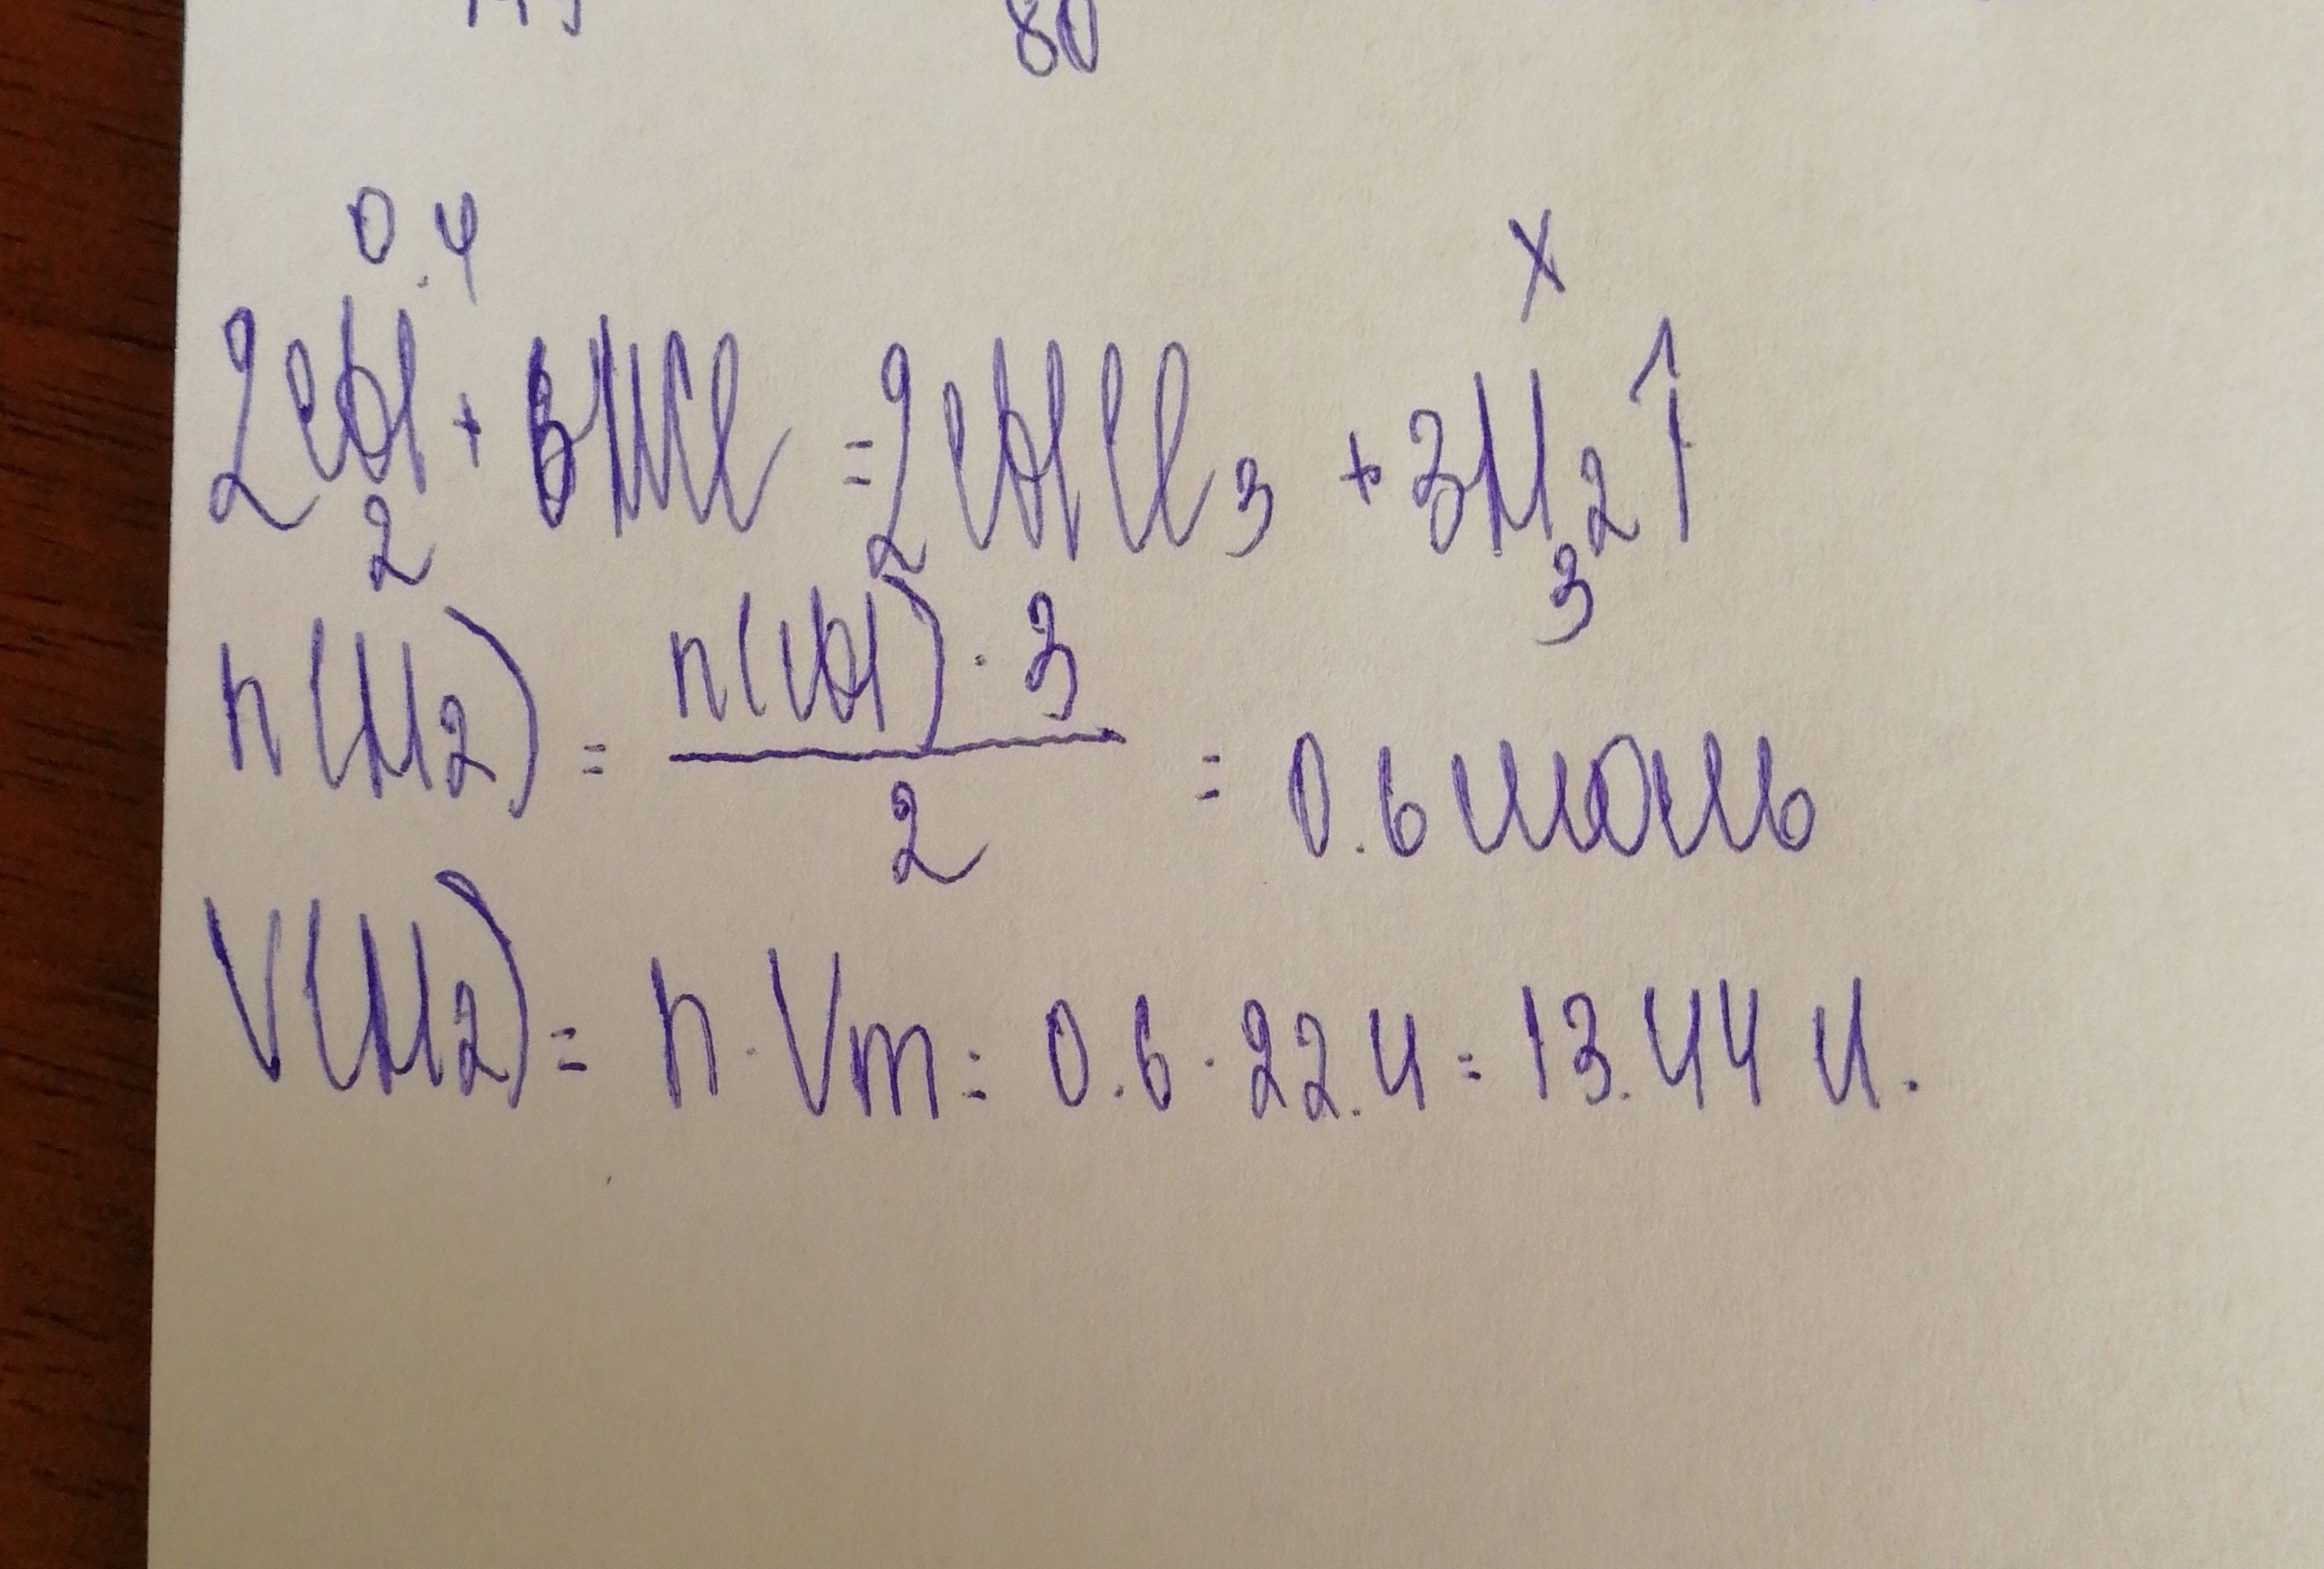 80
0.4 x
2Al + 6HCl = 2AlCl3 + 3H2↑
2 3
n(H2) = n(Al) · 3 / 2 = 0.6 моль
V(H2) = n · Vm = 0.6 · 22.4 = 13.44 л.